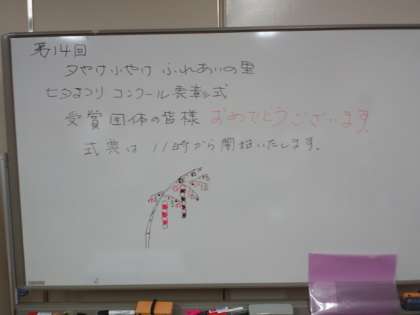 第14回
夕やけ小やけ ふれあいの里
七夕まつり コンクール表彰式
受賞団体の皆様 おめでとうございます。
式典は 11時から開始いたします。